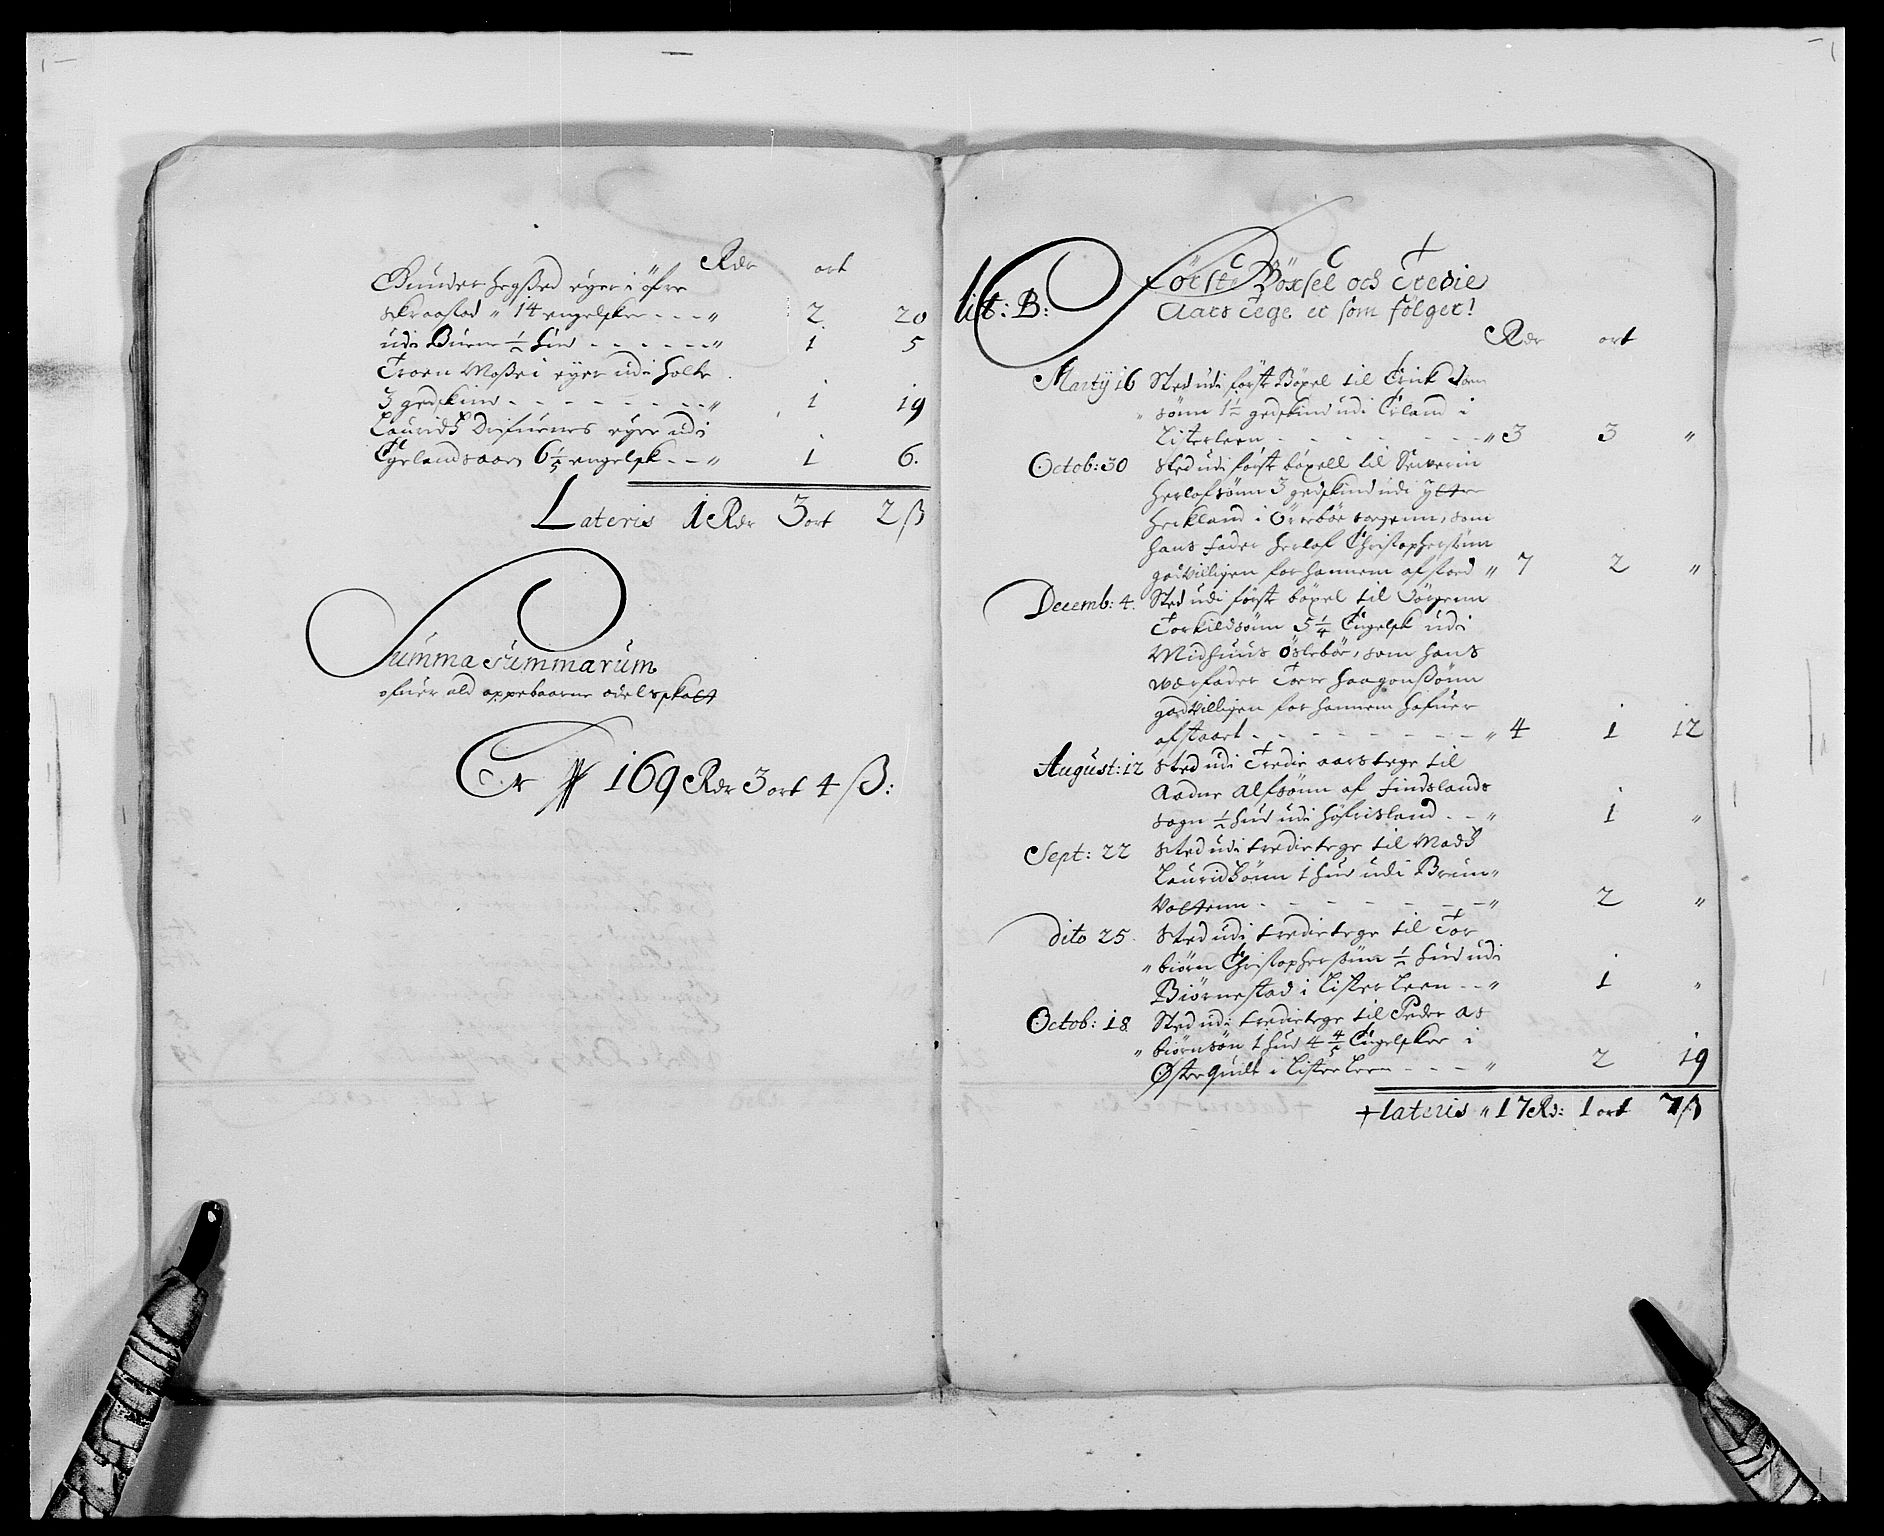 Rdr ort
Gunder Hegsted eyer i öfre
Skraastad " 14 engelsker - - - " 2 20
udi Buene ½ hud - - - - - - " 1 5
Troen Moseri eyer udi Holte
3 gedskind - - - - - - - - " 1 19
Lauridtz Difuenes eyer udi
Egelandsaaen 6 1/5 engelsk - - " 1 6.
Lateris 1 Rdr 3 ort 2 ß
Summa Summarum
ofuer ald oppebaarne odelsskatt
Er 169 Rdr 3 ort 4 ß:
lit: B: Förste Böxsel och Tredie
Aars Tege er som fölger!
Rdr ort
Martij 16 Sted udi först Böxel til Erick Joen
" sönn 1½ gedskind udi Eiland i
Listerleen - - - - - - - - " 3 3 "
Octob: 30 Sted udi först böxell til Seiverin
Herlofsönn 3 gedskind udi Yttre
Heckland i Öreböe sogenn, som
hans fader Herlof Christophersönn
godvilligen for hannem afstoed " 7 2 "
Decemb: 4. Sted udi först böxel til Jörgenn
Torkildsönn 5 ¼ Engelsk udi
Midhuus Ösleböe, som hans
værfader Tore Haagensönn
godvilligen for hannem hafuer
afstaaet - - - - - - - - - " 4 1 12
August: 12 Sted udi Tredie aarstege til
Aadne Alfsönn af Findslands
sogn ½ hud udi Höfrisland - - " 1 "
Sept: 22 Sted udi tredietege til Madtz
Lauridtzönn 1 hud udi Brun"
Vattenn - - - - - - - - " 2 "
dito 25. Sted udi tredietege til Tor
" biörn Christophersönn ½ hud udi
Biörnestad i Lister Leen - - " 1 "
Octob: 18 Sted udi tredietege til Peder As
" biörnsön 1 hud 4 4/5 Engelsker i
Østerquilt i Lister Leen - - - " 2 19
+ lateris " 17 Rd: 1 ort 7 ß